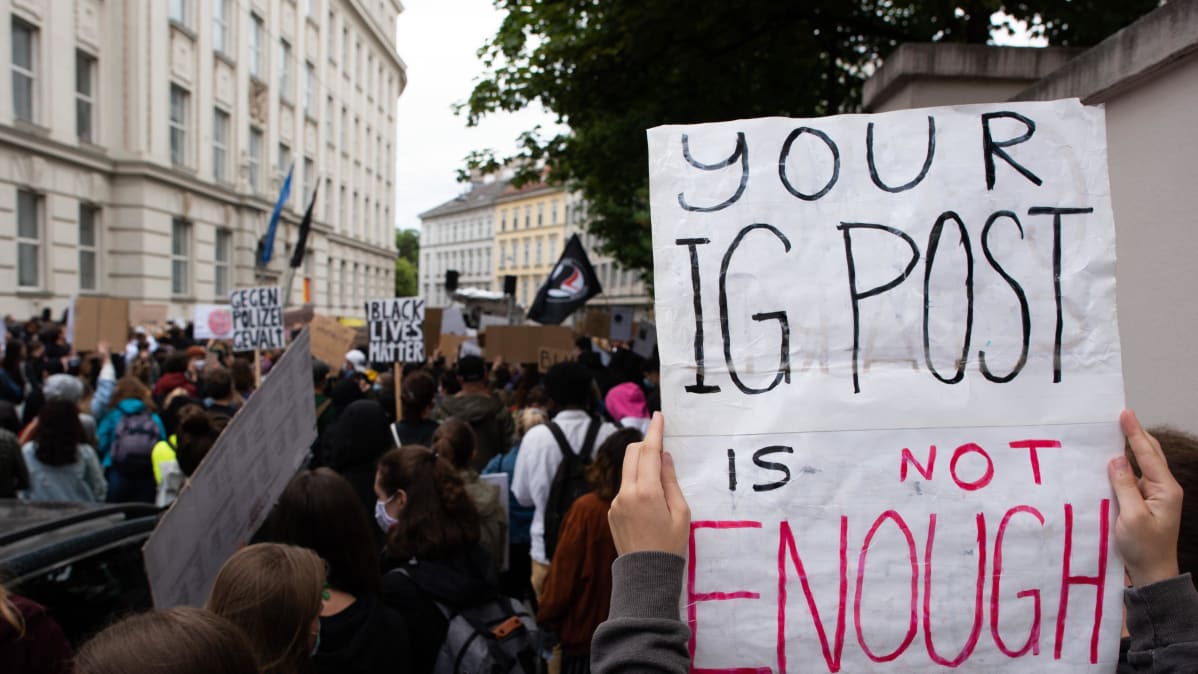 GEGEN
POLIZEI
GEWALT
BLACK
LIVES
MATTER
BLACK
YOUR
IG POST
IS NOT
ENOUGH